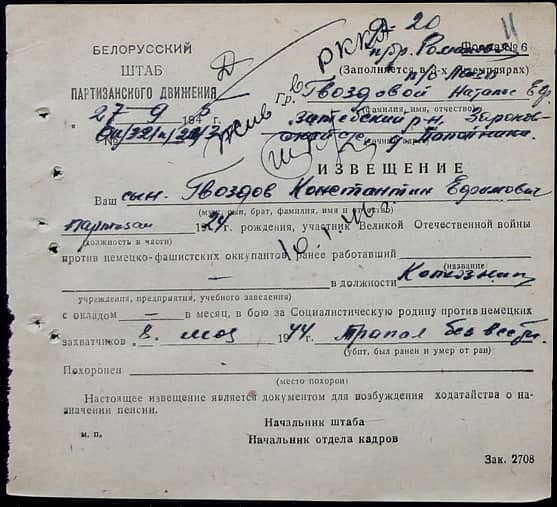 БЕЛОРУССКИЙ
ШТАБ
ПАРТИЗАНСКОГО ДВИЖЕНИЯ
27 9 194 г.
№
Д
в РККА
Жив
Д-20
Форма № 6
(Заполняется в 3-х экземплярах)
Гр. Гвоздовой
(фамилия, имя, отчество)
ИЗВЕЩЕНИЕ
Ваш сын. Гвоздов Константин Ефимович
(муж, сын, брат, фамилия, имя и отчество)
партизан 1924 г. рождения, участник Великой Отечественной войны
(должность в части)
10.1.46 г.
против немецко-фашистских оккупантов, ранее работавший
(название)
— в должности Колхозник
учреждения, предприятия, учебного заведения)
с окладом — в месяц, в бою за Социалистическую родину против немецких
захватчиков 8. мая 1944 г. пропал без вести.
(убит, был ранен и умер от ран)
Похоронен
(место похорон)
Настоящее извещение является документом для возбуждения ходатайства о на-
значении пенсии.
Начальник штаба
м. п. Начальник отдела кадров
Зак. 2708